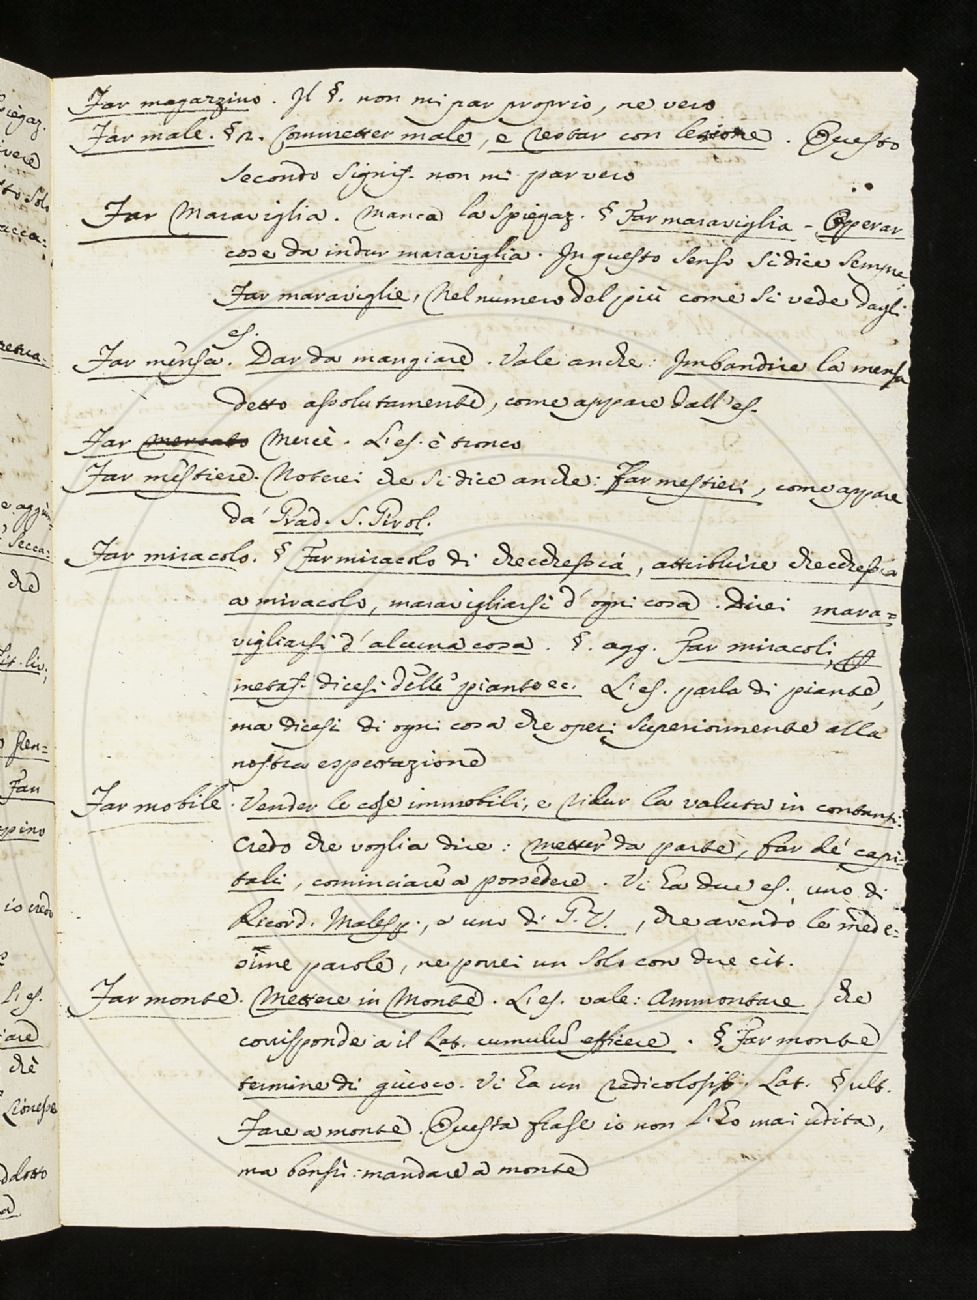 Far magazzino. Il §. non mi par proprio, ne vero
Far male. § 2. Commetter male, e restar con lesione. Questo
secondo signif. non mi par vero
Far Maraviglia. Manca la spiegaz. § Far maraviglia - Operar
cose da indur maraviglia. In questo senso si dice sempre
Far maraviglie, nel numero del più come si vede dagli
es.
Far mensa. Dar da mangiare. Vale anche: Imbandire la mensa
detto assolutamente, come appare dall'es.
Far mercato Mercè. L'es. è tronco
Far mestiere. Noterei che si dice anche: Far mestieri, come appare
da Trad. S. Girol.
Far miracolo. § Far miracolo di checchessia, attribuire checchessia
a miracolo, maravigliarsi d'ogni cosa. Direi mara=
vigliarsi d'alcuna cosa. §. agg. Far miracoli,
metaf. dicesi delle piante ec. L'es. parla di piante,
ma dicesi di ogni cosa che operi superiormente alla
nostra espettazione
Far mobile. Vender le cose immobili, e ridur la valuta in contanti.
Credo che voglia dire: metter da parte, far de' capi=
tali, cominciare a possedere. Vi ha due es. uno di
Ricord. Malesp., e uno di G. V., che avendo le mede=
sime parole, ne porrei un solo con due cit.
Far monte. Mettere in Monte. L'es. vale: Ammontare che
corrisponde a il Lat. cumulũ efficere. § Far monte
termine di giuoco. Vi ha un redicolosiss. Lat. § ult.
Fare a monte. Questa frase io non l'ho mai udita,
ma bensì: mandare a monte